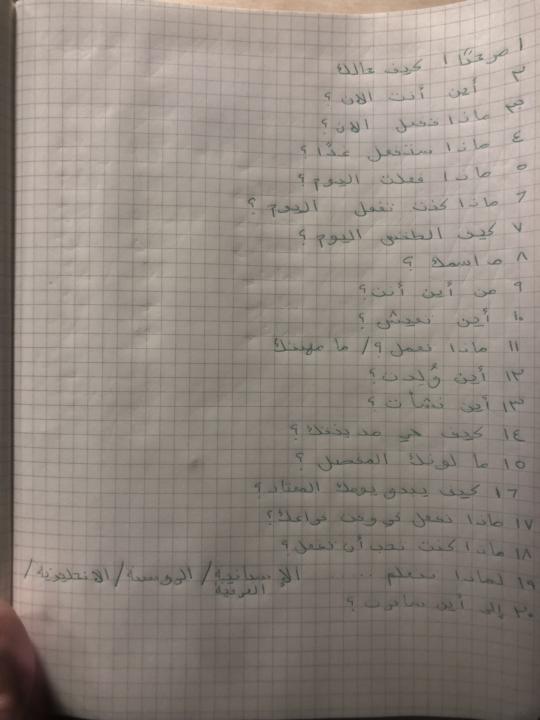 ١ مرحبًا ! كيف حالك
٢ أين أنت الآن ؟
٣ ماذا تفعل الآن ؟
٤ ماذا ستفعل غدًا ؟
٥ ماذا فعلت اليوم ؟
٦ ماذا كنت تفعل اليوم ؟
٧ كيف الطقس اليوم ؟
٨ ما اسمك ؟
٩ من أين أنت ؟
١٠ أين تعيش ؟
١١ ماذا تعمل ؟ / ما مهنتك
١٢ أين وُلدت ؟
١٣ أين نشأت ؟
١٤ كيف هي مدينتك ؟
١٥ ما لونك المفضل ؟
١٦ كيف يبدو يومك المعتاد ؟
١٧ ماذا تفعل في وقت فراغك ؟
١٨ ماذا كنت تحب أن تفعل ؟
١٩ لماذا تتعلم ..... الإسبانية / الروسية / الانجليزية /
العربية
٢٠ إلى أين سافرت ؟